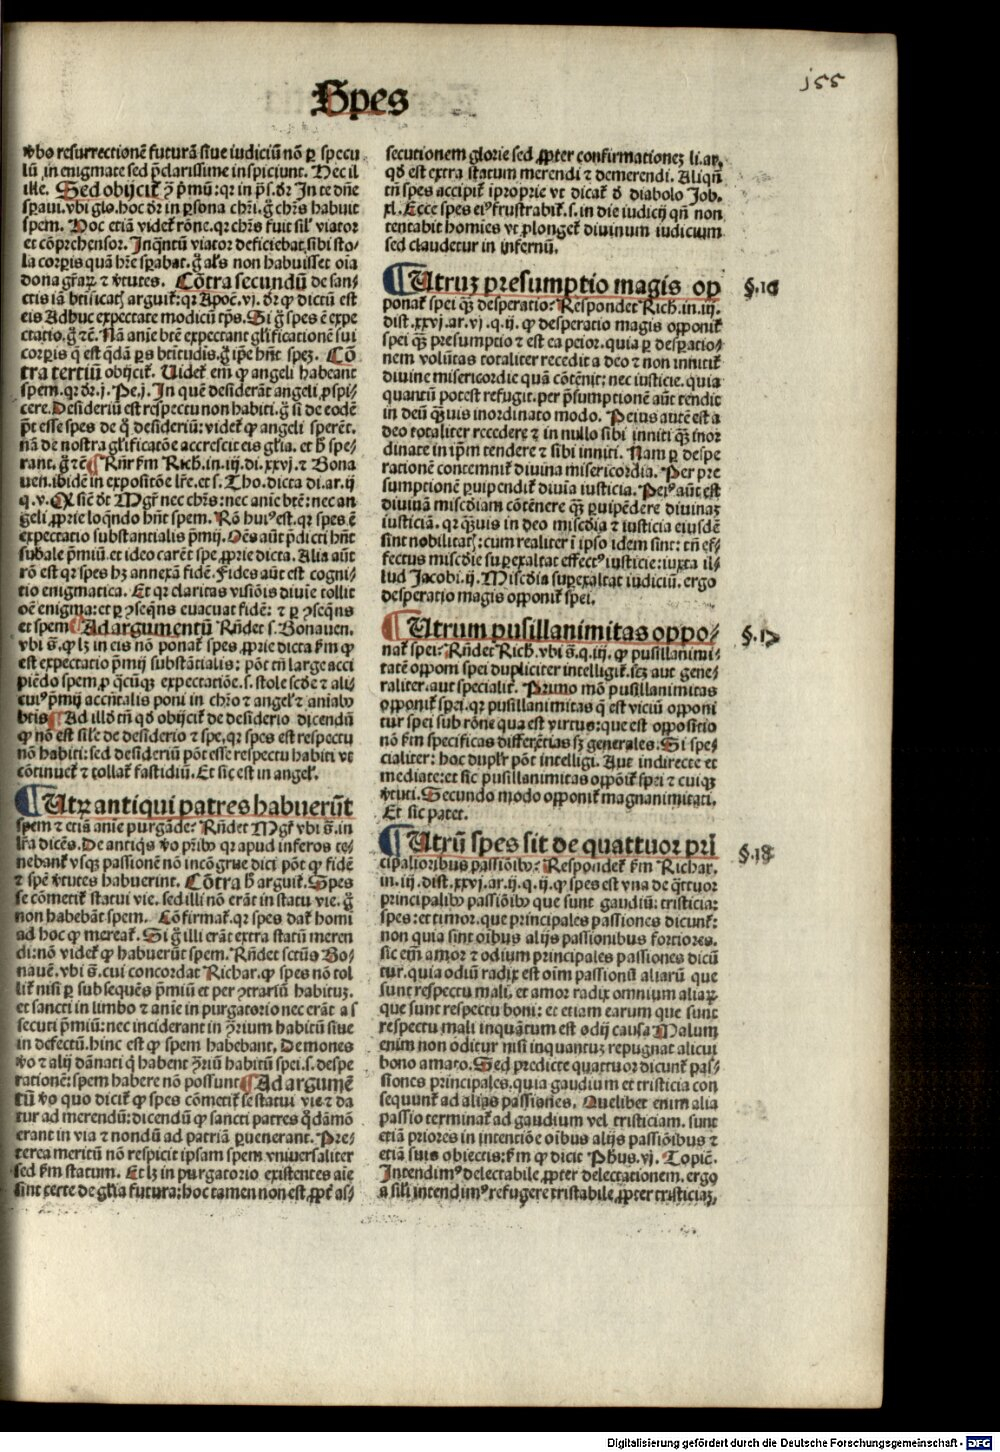 Spes
j55
v̄bo resurrectionē futurā siue iudiciū nō ꝑ specu
lū in enigmate sed p̄clarissime inspiciunt. Nec il
ille. Sed obijcit᷑ ꝯ p̄mū: qꝛ in p̄s. dꝛ In te dn̄e
sꝑaui. vbi glo. hoc dꝛ in ꝑsona chꝛi. g̊ chꝛs habuit
spem. Hoc etiā videt᷑ rōne. qꝛ chꝛs fuit sil' viator
et cōprehensor. Inq̄ntū viator deficiebat sibi sto⸗
la corꝑis quā hr̄e sꝑabat. g̊ al's non habuisset oīa
dona gr̄aꝝ ⁊ v̄tutes. Cōtra secundū de san⸗
ctis iā btīficatꝭ arguit᷑: qꝛ Apoc̄. vj. dꝛ ꝙ dictū est
eis Adhuc expectate modicū tp̄s. Si g̊ spes ē expe
ctatio. g̊ ⁊c̄. Nā aīe btē expectant gl'ificationē sui
corꝑis q̄ est q̄dā ꝑs btītudis. g̊ ip̄e hn̄t speꝫ. Cō
tra tertiū obijcit᷑. Videt᷑ em̄ ꝙ angeli habeant
spem. qꝛ dꝛ. j. Pe. j. In quē desiderāt angeli ꝓspi⸗
cere. Desideriū est respectu non habiti. g̊ si de eodē
p̄t esse spes de q̊ desideriū: videt᷑ ꝙ angeli sperēt.
nā de nostra gl'ificatōe accrescit eis gl'ia. et h̄ spe⸗
rant. g̊ ⁊c̄ ¶ Rn̄r fm̄ Rich. in. iij. di. xxvj. ⁊ Bona
uen. ibidē in expositōe lr̄e. et s. Tho. dicta di. ar. ij
q. v. Ꝙ sic̄ dt Mgr̄ nec chꝛs: nec anīe btē: nec an
geli ꝓprie loq̄ndo hn̄t spem. Rō huiꝰ est. qꝛ spes ē
expectatio substantialis p̄mij. Oēs aūt p̄dicti hn̄t
subāle p̄miū. et ideo carēt spe ꝓprie dicta. Alia aūt
rō est qꝛ spes hꝫ annexā fidē. Fides aūt est cogni⸗
tio enigmatica. Et qꝛ claritas visiōis diuīe tollit
oē enigma: et ꝑ ꝯseq̄ns euacuat fidē: ⁊ ꝑ ꝯseq̄ns
et spem ¶ Ad argumentū Rn̄det s. Bonauen.
vbi s̄. ꝙ lꝫ in eis nō ponat᷑ spes ꝓprie dicta fm̄ ꝙ
est expectatio p̄mij substātialis: pōt tn̄ large acci
piēdo spem ꝓ q̄cūqꝫ expectatiōe. s. stole scd̄e ⁊ ali⸗
cuiꝰ p̄mij accn̄talis poni in chꝛo ⁊ angel' ⁊ aīabꝰ
btīs ¶ Ad illd̄ tn̄ qd̄ obijcit᷑ de desiderio dicendū
ꝙ nō est sil'e de desiderio ⁊ spe. qꝛ spes est respectu
nō habiti: sed desideriū pōt esse respectu habiti vt
cōtinuet᷑ ⁊ tollat᷑ fastidiū. Et sic est in angel'.
¶ Utꝝ antiqui patres habuerūt
spem ⁊ etiā anīe purgāde: Rn̄det Mgr̄ vbi s̄. in
lr̄a dicēs. De antiq̄s v̊o pr̄ibꝰ qꝛ apud inferos te⸗
nebant᷑ vsqꝫ passionē nō incōgrue dici pōt ꝙ fidē
⁊ spē v̄tutes habuerint. Cōtra h̄ arguit᷑. Spes
se cōmetit᷑ statui vie. sed illi nō erāt in statu vie. g̊
non habebāt spem. Cōfirmat᷑. qꝛ spes dat᷑ homi
ad hoc ꝙ mereat᷑. Si g̊ illi erāt extra statū meren
di: nō videt᷑ ꝙ habuerūt spem. Rn̄det sctūs Bo⸗
nauē. vbi s̄. cui concordat Richar. ꝙ spes nō tol
lit᷑ nisi ꝑ subsequēs p̄miū et per ꝯtrariū habituꝫ.
et sancti in limbo ⁊ anīe in purgatorio nec erāt a s
secuti p̄miū: nec inciderant in ꝯrium habitū siue
in defectū. hinc est ꝙ spem habebant. Demones
v̊o ⁊ alij dānati q̄ habent ꝯriū habitū spei. s. despe
rationē: spem habere nō possunt ¶ Ad argumē
tū v̊o quo dicit᷑ ꝙ spes cōmetit᷑ se statui vie ⁊ da
tur ad merendū: dicendū ꝙ sancti patres q̊dāmō
erant in via ⁊ nondū ad patriā ꝑuenerant. Pre⸗
terea meritū nō respicit ipsam spem vniuersaliter
sed fm̄ statum. Et lꝫ in purgatorio existentes aīe
sint certe de gl'ia futura: hoc tamen non est ꝓpt᷑ as⸗
secutionem glorie sed ꝓpter confirmationeꝫ li. ar.
qd̄ est extra statum merendi ⁊ demerendi. Aliqn̄
tn̄ spes accipit᷑ īproprie vt dicat᷑ d̄ diabolo Job.
xl. Ecce spes eiꝰ frustrabit᷑. s. in die iudicij qn̄ non
tentabit homīes vt ꝓlonget᷑ diuinum iudicium
sed claudetur in infernū.
¶ Utruꝫ presumptio magis op
ponat᷑ spei qꝫ̄ desperatio: Respondet Rich. in. iij.
dist. xxvj. ar. vj. q. ij. ꝙ desperatio magis opponit᷑
spei qꝫ̄ presumptio ⁊ est ea peior. quia ꝑ desꝑatio⸗
nem volūtas totaliter recedit a deo ⁊ non innitit᷑
diuine misericordie quā cōtēnit: nec iusticie. quia
quantū potest refugit. per p̄sumptionē aūt tendit
in deū qꝫ̄uis inordinato modo. Peius autē est a
deo totaliter recedere ⁊ in nullo sibi inniti qꝫ̄ inor
dinate in ip̄m tendere ⁊ sibi inniti. Nam ꝑ despe
rationē contemnit᷑ diuina misericordia. Per pre
sumptionē ꝑuipendit᷑ diuīa iusticia. Peiꝰ aūt est
diuinā misc̄diam cōtēnere qꝫ̄ ꝑuipēdere diuinaꝫ
iusticiā. qꝛ qꝫ̄uis in deo misc̄dia ⁊ iusticia eiusdē
sint nobilitatꝭ: cum realiter ī ipso idem sint: tn̄ ef⸗
fectus misc̄die suꝑexaltat effectꝰ iusticie: iuxta il⸗
lud Jacobi. ij. Misc̄dia suꝑexaltat iudiciū. ergo
desperatio magis opponit᷑ spei.
¶ Utrum pusillanimitas oppo⸗
nat᷑ spei: Rn̄det Rich. vbi s̄. q. iij. ꝙ pusillanimi⸗
tatē opponi spei dupliciter intelligit᷑. scꝫ aut gene⸗
raliter. aut specialit᷑. Primo mō pusillanimitas
opponit᷑ spei. qꝛ pusillanimitas q̄ est viciū opponi
tur spei sub rōne qua est virtus: que est oppositio
nō fm̄ specificas differētias sꝫ generales. Si spe⸗
cialiter: hoc duplr̄ pōt intelligi. Aut indirecte et
mediate: et sic pusillanimitas oppōit᷑ spei ⁊ cuiqꝫ
v̄tuti. Secundo modo opponit᷑ magnanimitati.
Et sic patet.
¶ Utrū spes sit de quattuor prī
cipalioribus passiōibꝰ: Respondet᷑ fm̄ Richar.
in. iij. dist. xxvj. ar. ij. q. ij. ꝙ spes est vna de q̄ttuor
principalibꝰ passiōibꝰ que sunt gaudiū: tristicia:
spes: et timor. que principales passiones dicunt᷑:
non quia sint oībus alijs passionibus fortiores.
sic em̄ amor ⁊ odium principales passiones dicū
tur. quia odiū radix est oīm passionū aliarū que
sunt respectu mali. et amor radix omnium aliaꝝ
que sunt respectu boni: et etiam earum que sunt
respectu mali inquātum est odij causa Malum
enim non oditur nisi inquantuꝫ repugnat alicui
bono amato. Sed predicte quattuor dicunt᷑ pas⸗
siones principales. quia gaudium et tristicia con
sequunt᷑ ad alias passiones. Quelibet enim alia
passio terminat᷑ ad gaudium vel tristiciam. sunt
etiā priores in intentiōe oībus alijs passiōibus ⁊
etiā suis obiectis: fm̄ ꝙ dicit Ph̄us. vj. Topic̄.
Intendimꝰ delectabile ꝓpter delectationem. ergo
a sil'i intendimꝰ refugere tristabile ꝓpter tristiciaꝫ.
§.16
§.17
§.18
Digitalisierung gefördert durch die Deutsche Forschungsgemeinschaft - DFG